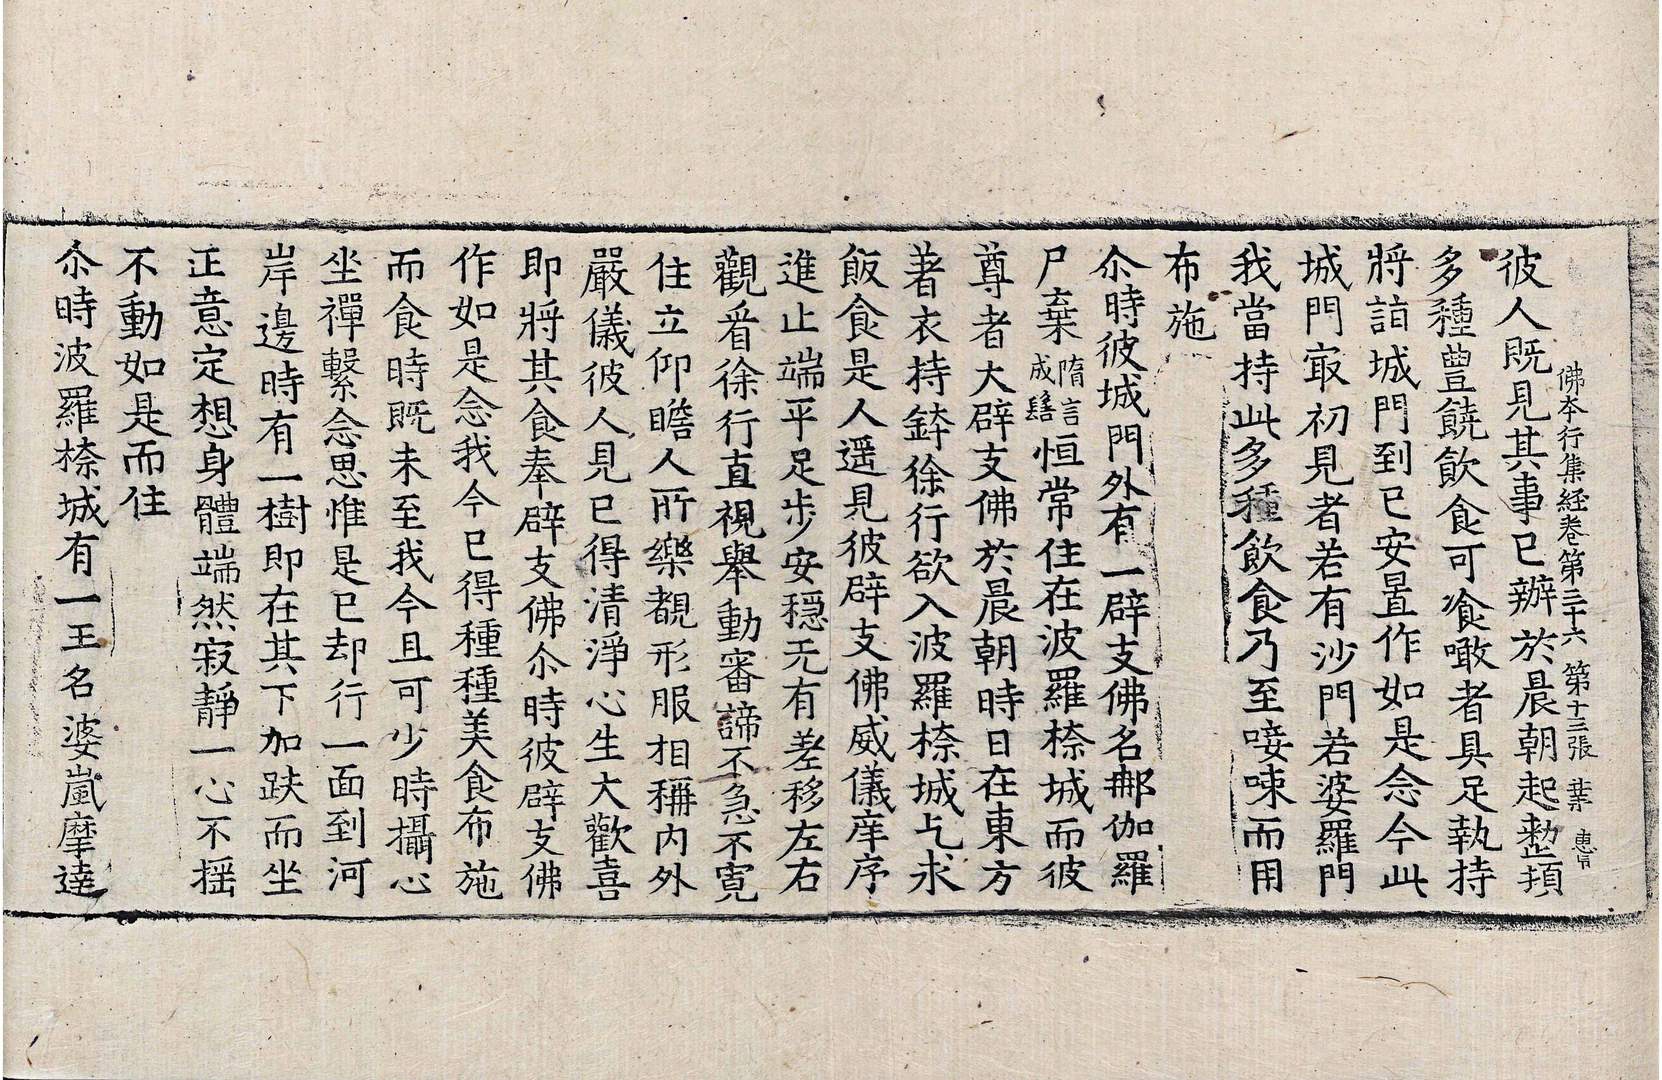 佛本行集經卷第三十六 第十三張 葉 惠
彼人旣見其事已辦於晨朝起整頓
多種豊饒飮食可飡噉者具足執持
將詣城門到已安置作如是念今此
城門㝡初見者若有沙門若婆羅門
我當持此多種飮食乃至唼唻而用
布施
尒時彼城門外有一辟支佛名那伽羅
尸棄隋言成髻恒常住在波羅㮈城而彼
尊者大辟支佛於晨朝時日在東方
著衣持鉢徐行欲入波羅㮈城乞求
飯食是人遥見彼辟支佛威儀庠序
進止端平足步安穩无有差移左右
觀看徐行直視舉動審諦不急不寬
住立仰瞻人所樂覩形服相稱內外
嚴儀彼人見已得清淨心生大歡喜
即將其食奉辟支佛尒時彼辟支佛
作如是念我今已得種種美食布施
而食時旣未至我今且可少時攝心
坐禪繫念思惟是已却行一面到河
岸邊時有一樹即在其下加趺而坐
正意定想身體端然寂靜一心不摇
不動如是而住
尒時波羅㮈城有一王名婆嵐摩達